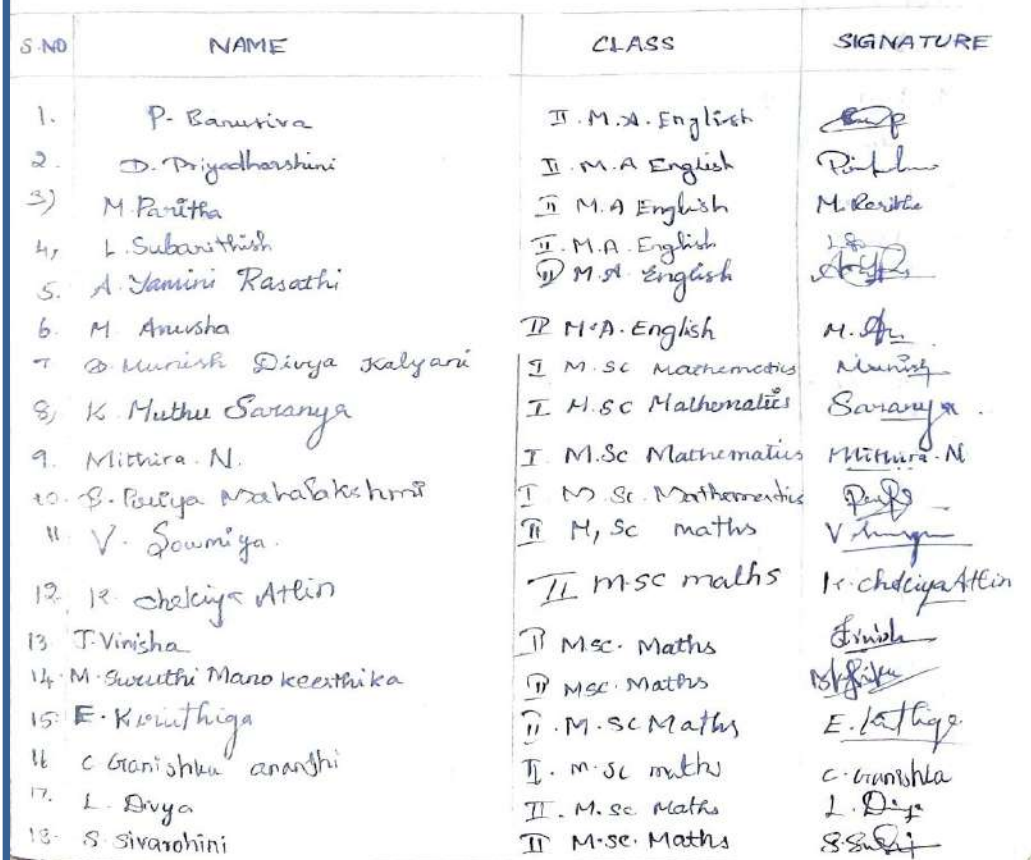 S.NO NAME CLASS SIGNATURE
1. P. Banusiva II. M.A. English
2. D. Priyadharshini II. M.A English
3) M. Paritha II M.A English M. Paritha
4, L. Subarithish II. M.A. English L.S
5. A. Yamini Rasathi II M.A. English
6. M. Anusha II M.A. English M.
7 D. Munish Divya Kalyani I M.Sc Mathematics Munish
8, K. Muthu Saranya I M.Sc Mathematics Saranya
9. Mithira. N. I M.Sc Mathematics Mithira. N
10. S. Petiya Mahalakshmi I M.Sc. Mathematics
11. V. Sowmiya. II M, Sc maths V
12. K. chelciya Atlin II M.SC maths K. chelciya Atlin
13. J. Vinisha II MSC. Maths
14. M. Suruthi Mano Keerthika II MSC. Maths
15. E. Kiruthiga II. M.SC Maths E.
16 C. Ganishka ananthi II. M.SC maths C. Ganishka
17. L. Divya II. M.Sc. Maths L. Divya
18. S. Sivarohini II M.SC. Maths